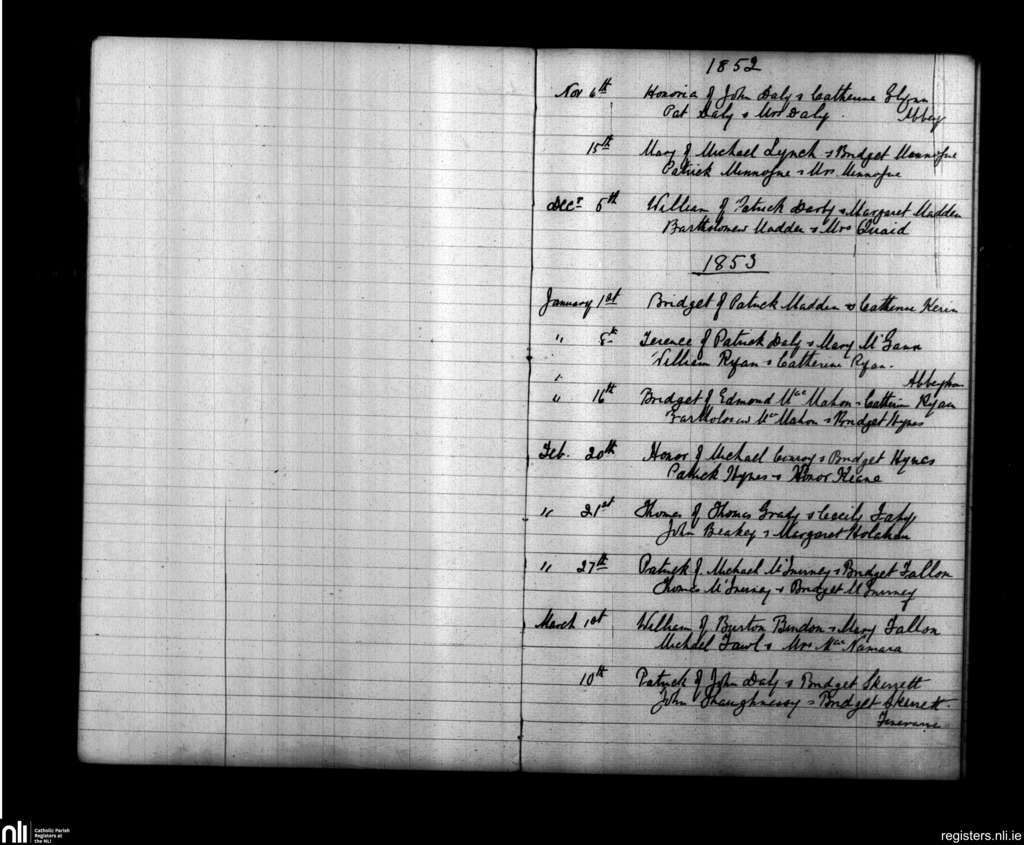 1852
Nov 6th Honoria of John Daly & Catherine Glynn
Pat Daly & Mrs Daly. Abbey
15th Mary of Michael Lynch & Bridget Minnogue
Patrick Minnogue & Mrs Minnogue
Decr 5th William of Patrick Darby & Margaret Madden
Bartholomew Madden & Mrs Quaid
1853
January 1st Bridget of Patrick Madden & Catherine Kerin
" 8th Terence of Patrick Daly & Mary McGann
William Ryan & Catherine Ryan.
Abbey
" 16th Bridget of Edmond Mac Mahon & Catherine Ryan
Bartholomew Mc Mahon & Bridget Hynes
Feb. 20th Honor of Michael Conroy & Bridget Hynes
Patrick Hynes & Honor Keane
" 21st Thomas of Thomas Grady & Cecily Fahy
John Beakey & Margaret Holahan
" 27th Patrick of Michael McInerney & Bridget Fallon
Thomas McInerney & Bridget McInerney
March 1st William of Burton Bindon & Mary Fallon
Michael Fawl & Mrs Mac Namara
10th Patrick of John Daly & Bridget Skerrett
John Shaughnessy & Bridget Skerrett.
Finevarra
nli
Catholic Parish
Registers at
the NLI
registers.nli.ie